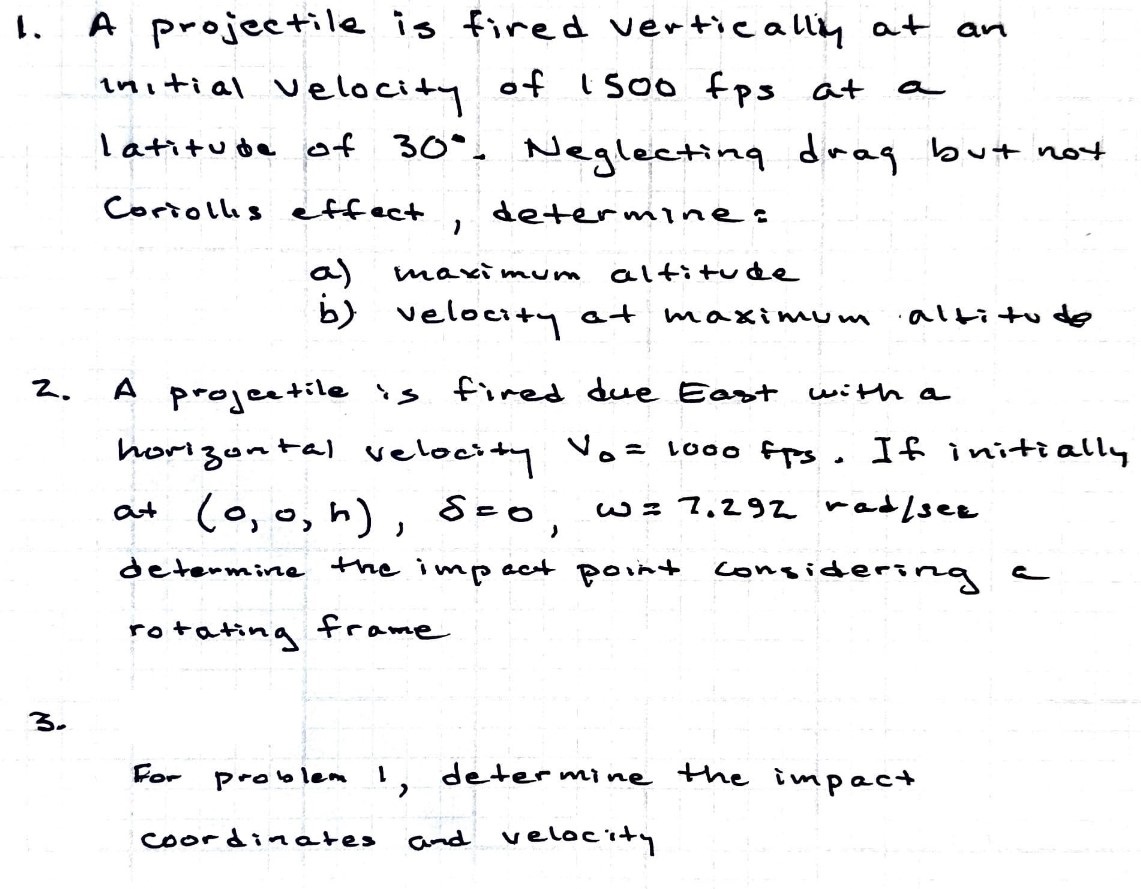 1. A projectile is fired vertically at an
initial velocity of 1500 fps at a
latitude of 30°. Neglecting drag but not
Coriollis effect, determine:
a) maximum altitude
b) velocity at maximum altitude
2. A projectile is fired due East with a
horizontal velocity V₀ = 1000 fps. If initially
at (0, 0, h), δ = 0, ω = 7.292 rad/sec
determine the impact point considering a
rotating frame
3.
For problem 1, determine the impact
coordinates and velocity